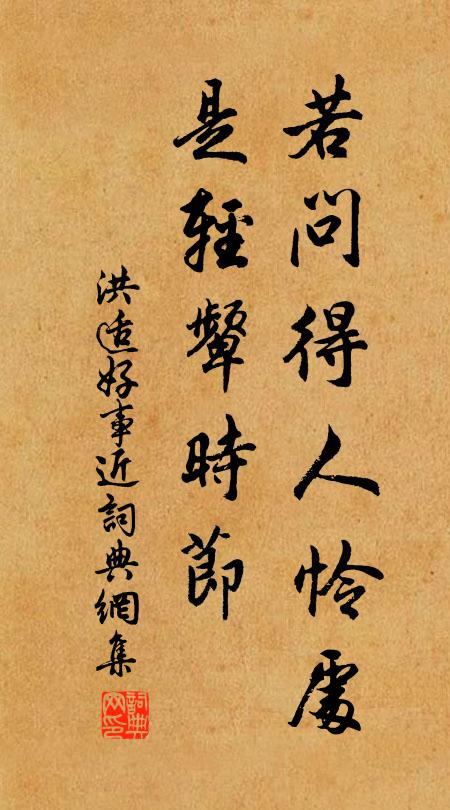 若問得人怜處
是輕顰時節
洪适好事近詞典網集
詞典網印